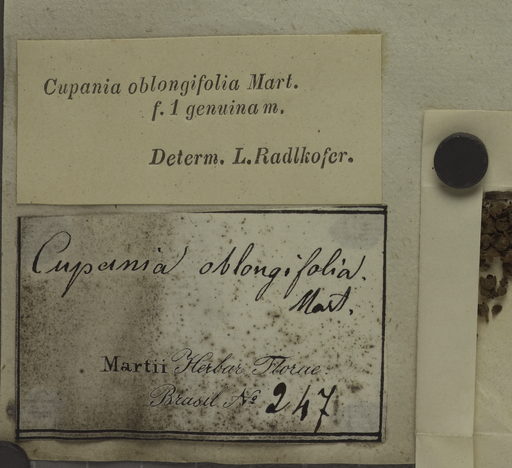 Cupania oblongifolia Mart.
f. 1 genuina m.
Determ. L. Radlkofer.
Cupania oblongifolia.
Mart.
Martii Herbar. Florae
Brasil Nº 247